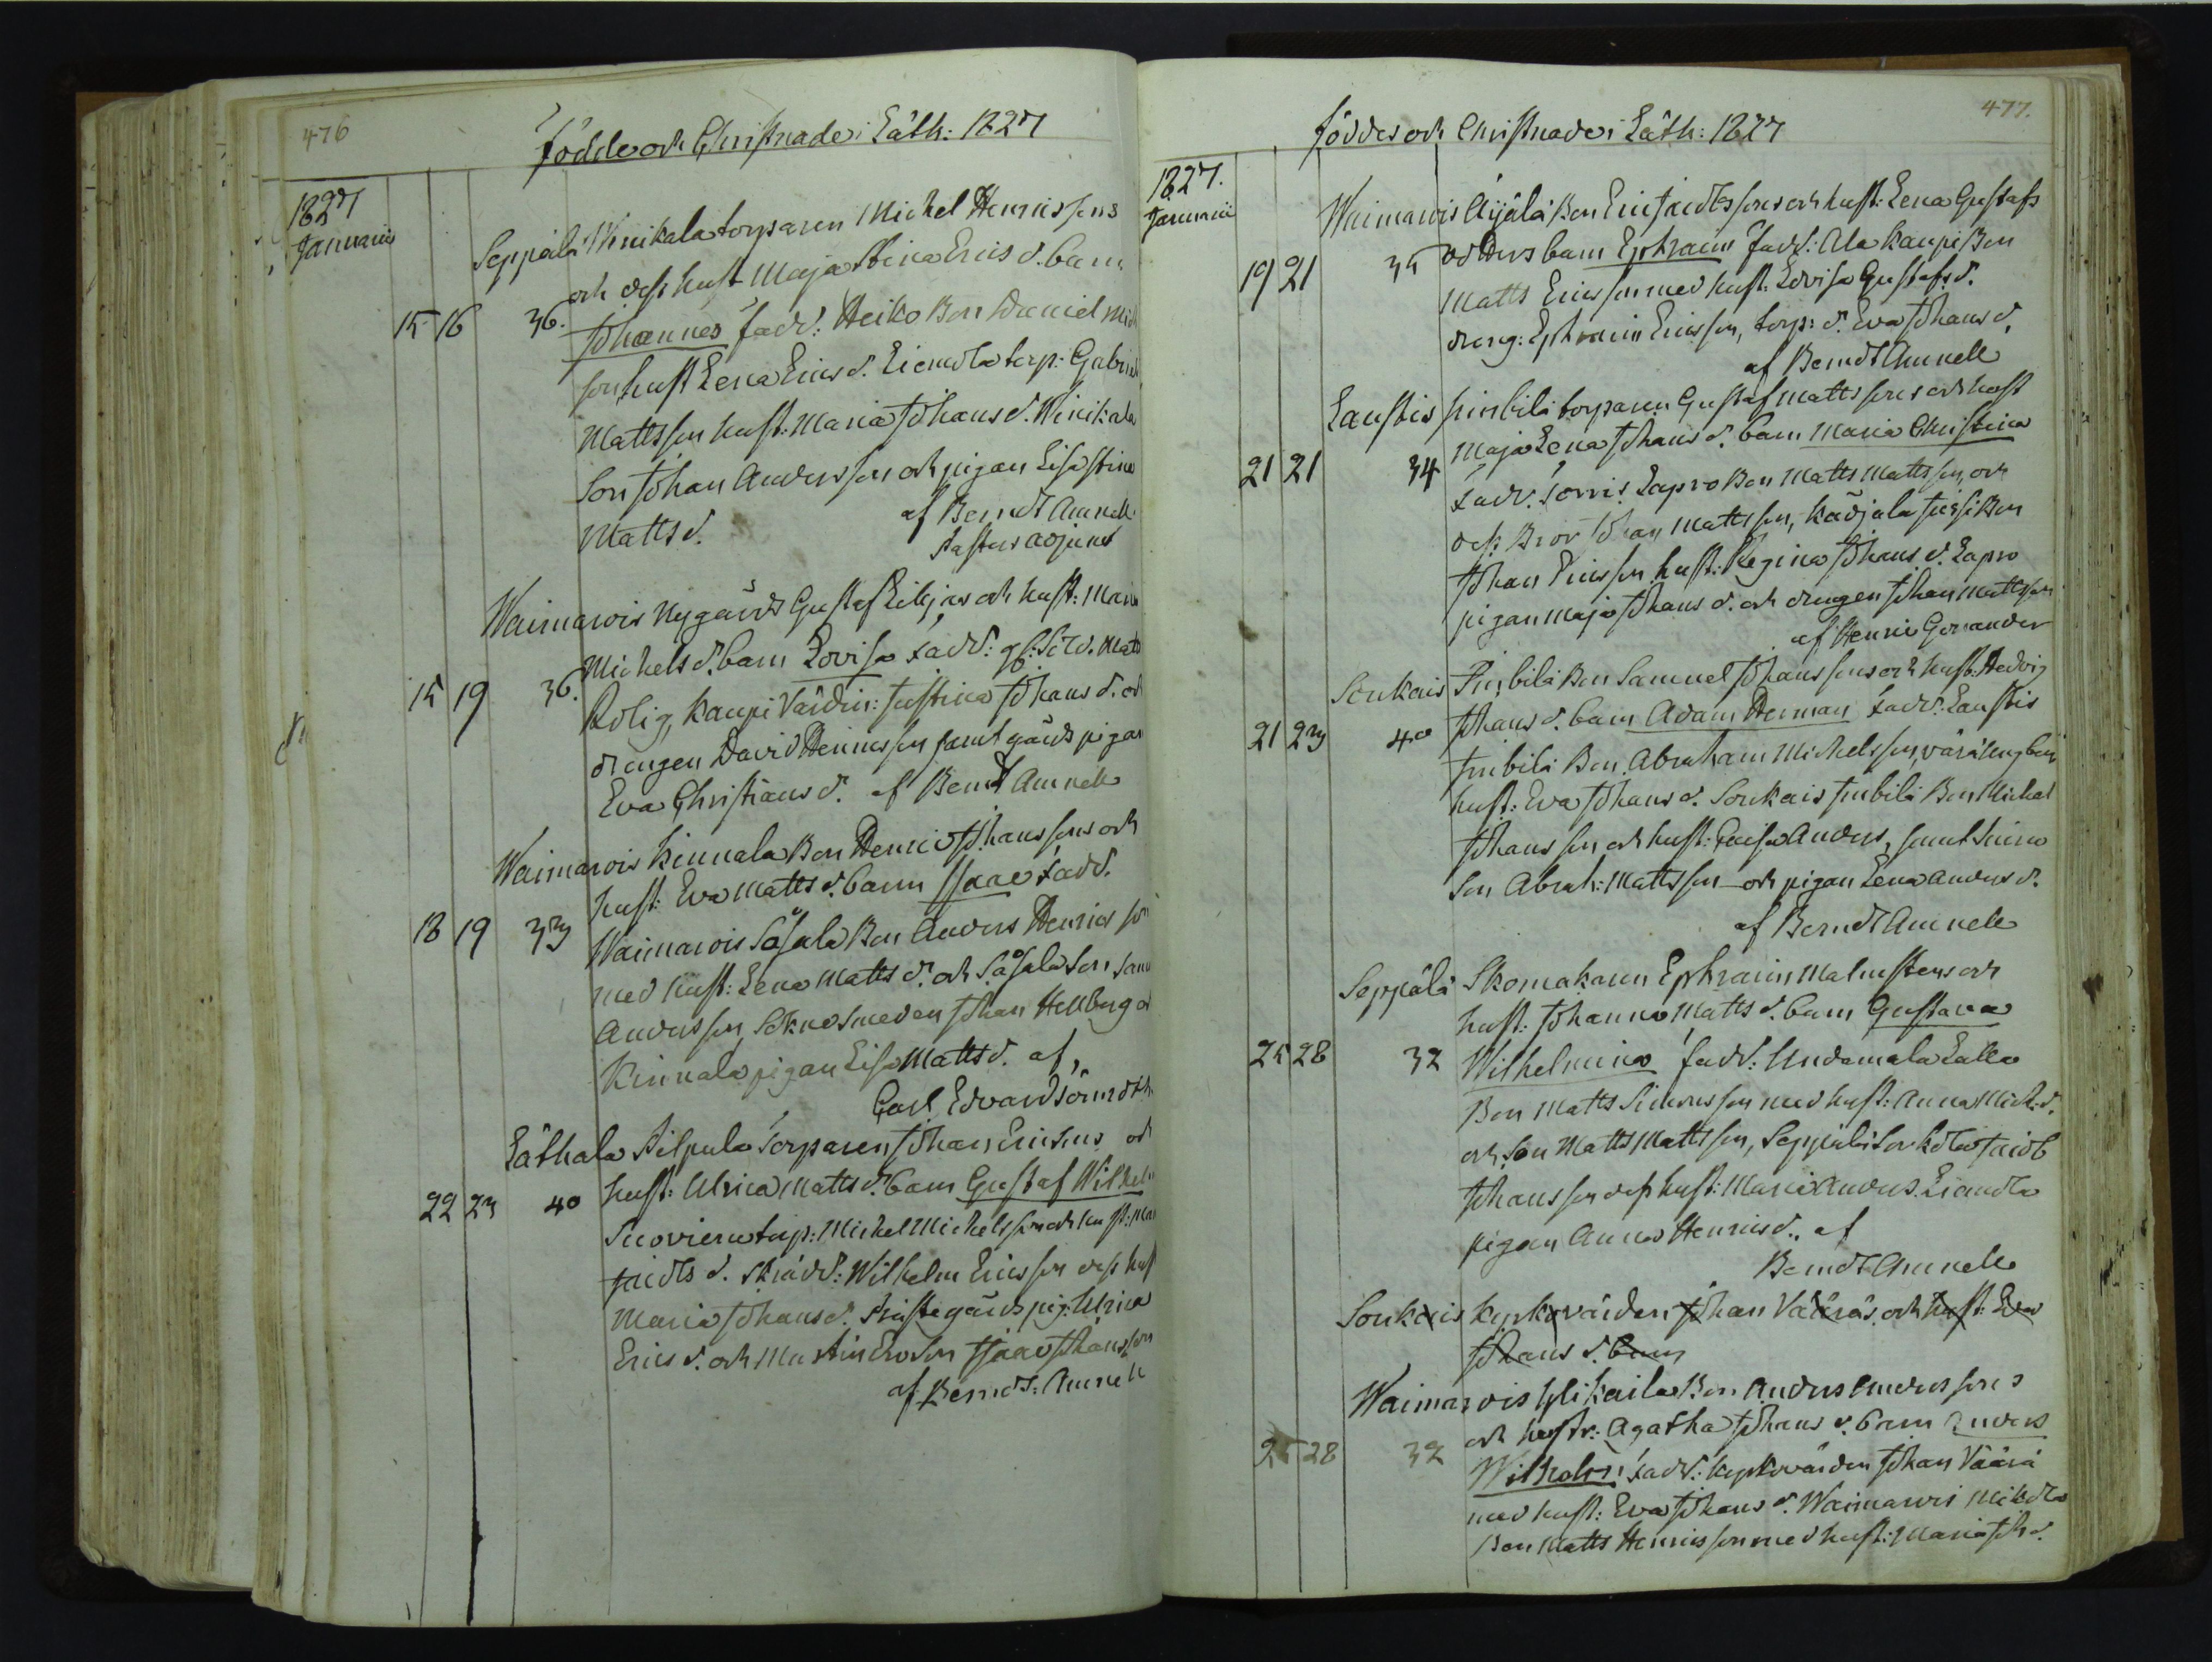 476
Födde och Christnade i Läth: 1827
1827
Januarii
Seppälä Winikala torparen Michel Henricssons
och dess hust Maja Stina Erics d. barn
15 16 36. Johannes fadd: Heiko Bon Daniel Mich
son hust Lena Erics d. torp: Gabriel
Mattsson hust: Maria Johans d. Winikala
Son Johan Andersson och pigan Lisa Stina
Matts d. af Berndt Amnell
Pastors adjunct
Waimarois Nygårds Gustaf Liljas och hust: Maria
Michels d. barn Lovisa fadd: Matts
15 19 36. Rolig, Kaupi Värdin: Justina Johans d. och
drengen David Henricsson samt gårds pigan
Eva Christians d. af Berndt Amnell
Waimarois Kinnala Bon Henric Johanssons och
hust: Eva Matts d. barn Isaac fadd.
18 19 33 Waimarois Såsala Bon Anders Henrics son
med hust: Lena Matts d. och Såsala Son
Andersson, Sokne Smeden Johan Hellberg och
Kinnala pigan Lisa Matts d. af,
Carl Edvard
Läthala Pilpula Torparen Johan Ericsons och
hust: Ulrica Matts d. barn Gustaf Wilhelm
22 23 40
torp: Michel Michelsson och hust: Mar
Jacobs d. Skrädd: Wilhelm Ericsson dess hust
Maria Johans d. Prästegårds pig: Ulrica
Erics d. och Son Isaac Johansson
af Berndt: Amnell
477.
Föddes och Christnade i Läth: 1827
1827.
Januarii
Waimarois Äijälä Bon Eric Jacobssons och hust: Lena Gustafs
19 21 35 dotters barn Ephraim fadd: Ala Kaupi Bon
Matts Ericsson med hust: Lovisa Gustafs d.
dreng: Ephraim Ericsson, torp: d. Eva Johans d.
af Berndt Amnell
Laustis torparen Gustaf Mattssons och hust
Maja Lena Johans d. barn Maria Christina
21 21 34 fadd. Lapro Bon Matts Mattsson, och
dess Bror Johan Mattsson, Käöjala Bon
Johan Ericsson hust: Regina Johans d. Lapro
pigan Maja Johans d. och drengen Johan Mattsson
af Henric
Soukais Bon Samuel Johanssons och hust: Hedvig
21 23 40 Johans d. barn Adam Herman fadd: Laustis
Bon Abraham Michelsson,
hust: Eva Johans d. Soukais Bon Michel
Johansson och hust: Anders, samt
Son Abrah: Mattsson och pigan Lena Anders d.
af Berndt Amnell
Seppälä Skomakaren Ephraim Malmstens och
hust: Johanna Matts d. barn Gustava
25 28 32 Wilhelmina fadd: Undamala
Bon Matts Simonsson med hust: Anna Mich: d.
och Son Matts Mattsson, Seppälä
Johansson dess hust: Maria Anders.
pigan Anna Henrics d., af
Berndt Amnell
Soukais Kyrkovärden Johan Vääräs och hust: Eva
Johans d. barn
Waimarois Yli Kaila Bon Anders Anderssons
och hustr: Agatha Johans d. barn Anders
25 28 32 Wilhelm fadd: Kyrkovärden Johan Väärä
med hust: Eva Johans d. Waimarois Mikola
Bon Matts Henricsson med hust: Maria Joh d.